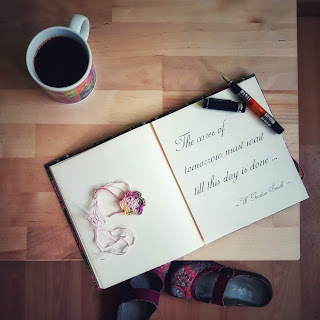 The cares of
tomorrow must wait
till this day is done ...
~W. Gordon Smith ~